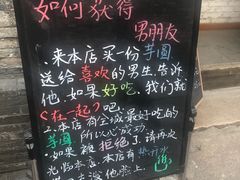 如何获得
男朋友
1.来本店买一份芋圆
送给喜欢的男生.告诉
他.如果好吃.我们就
《在一起》吧.
2.本店有全城最好吃的
芋圆 所以必成功
如果被拒绝了.请再次
光临本店.本店有热开水
泼他脸上.